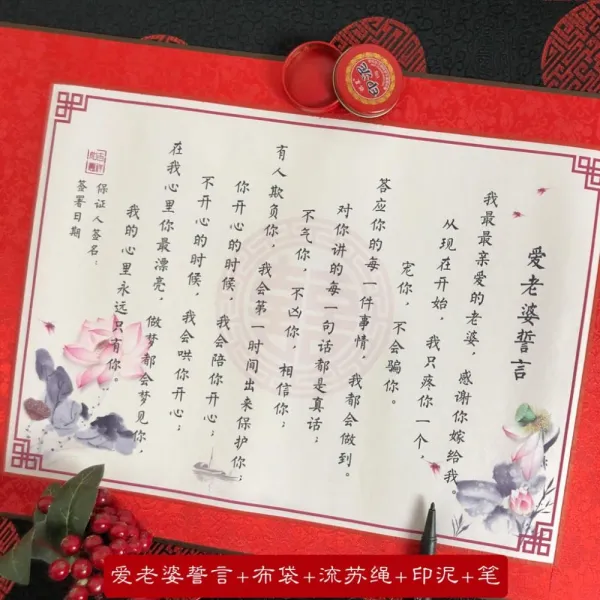 爱老婆誓言
我最最亲爱的老婆，感谢你嫁给我。
从现在开始，我只疼你一个，
宠你，不会骗你。
答应你的每一件事情，我都会做到。
对你讲的每一句话都是真话；
不气你，不凶你，相信你；
有人欺负你，我会第一时间出来保护你；
你开心的时候，我会陪你开心；
不开心的时候，我会哄你开心；
在我心里你最漂亮，做梦都会梦见你，
我的心里永远只有你。
保证人签名：
签署日期
印泥
爱老婆誓言+布袋+流苏绳+印泥+笔